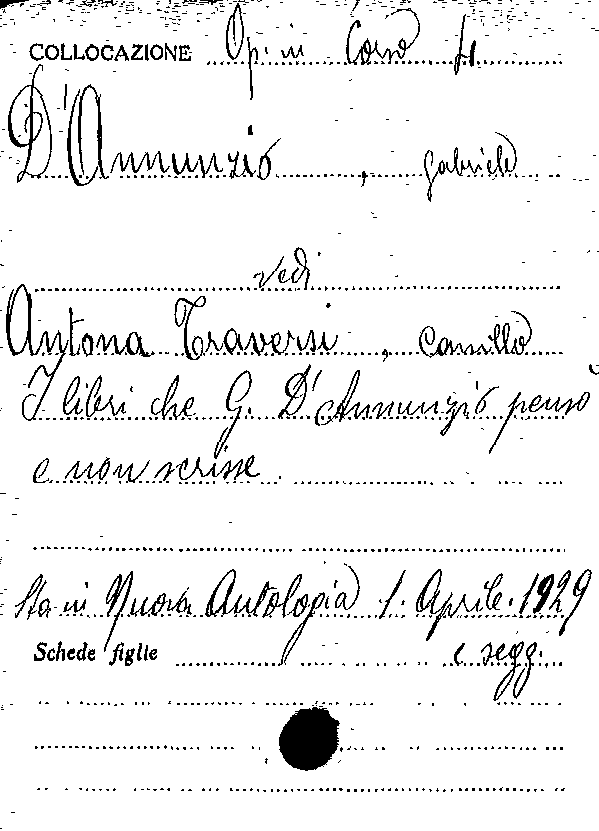 COLLOCAZIONE Op. in Corso 4
D'Annunzio, Gabriele
vedi
Antona Traversi, Camillo
I libri che G. D'Annunzio pensò
e non scrisse
Sta in Nuova Antologia 1. Aprile. 1929
Schede figlie e segg.